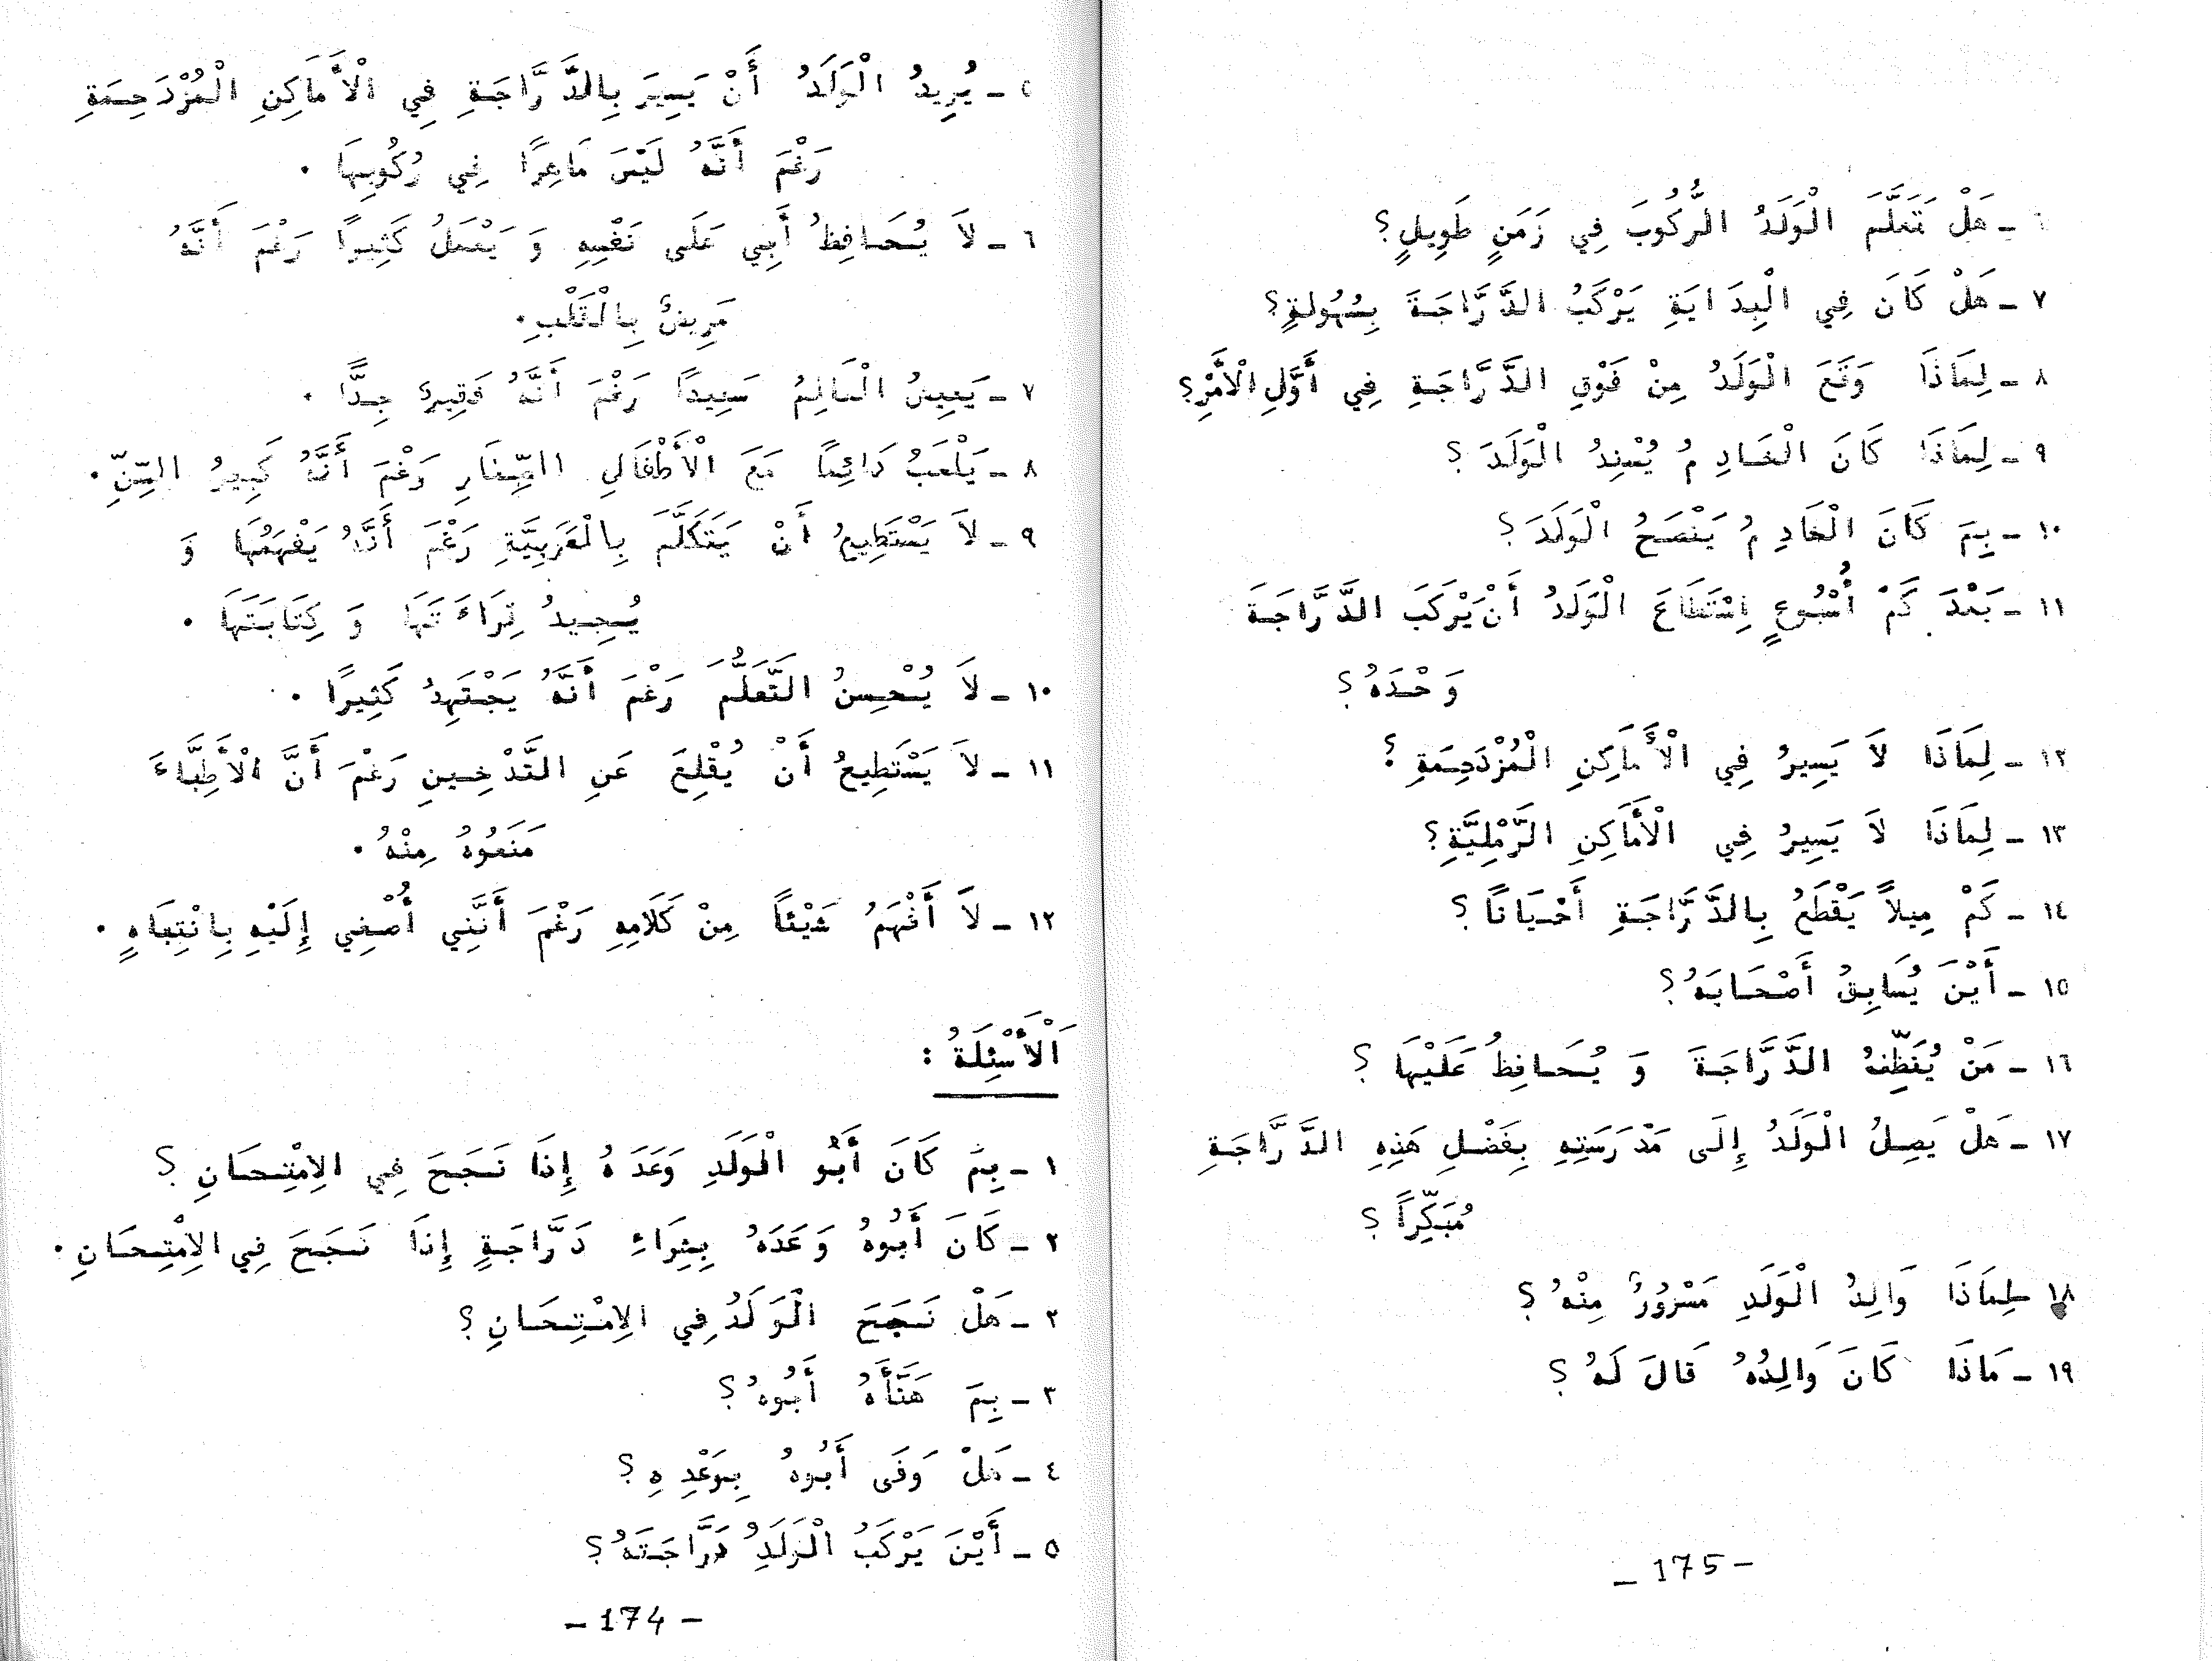 ٥ - يُرِيدُ الْوَلَدُ أَنْ يَسِيرَ بِالدَّرَّاجَةِ فِي الْأَمَاكِنِ الْمُزْدَحِمَةِ
رَغْمَ أَنَّهُ لَيْسَ مَاهِرًا فِي رُكُوبِهَا .
٦ - لاَ يُحَافِظُ أَبِي عَلَى نَفْسِهِ وَ يَعْمَلُ كَثِيرًا رَغْمَ أَنَّهُ
مَرِيضٌ بِالْقَلْبِ .
٧ - يَعِيشُ الْعَالِمُ سَعِيدًا رَغْمَ أَنَّهُ فَقِيرٌ جِدًّا .
٨ - يَلْعَبُ دَائِمًا مَعَ الْأَطْفَالِ الصِّغَارِ رَغْمَ أَنَّهُ كَبِيرُ السِّنِّ .
٩ - لاَ يَسْتَطِيعُ أَنْ يَتَكَلَّمَ بِالْعَرَبِيَّةِ رَغْمَ أَنَّهُ يَفْهَمُهَا وَ
يُجِيدُ قِرَاءَتَهَا وَ كِتَابَتَهَا .
١٠ - لاَ يُحْسِنُ التَّعَلُّمَ رَغْمَ أَنَّهُ يَجْتَهِدُ كَثِيرًا .
١١ - لاَ يَسْتَطِيعُ أَنْ يُقْلِعَ عَنِ التَّدْخِينِ رَغْمَ أَنَّ الْأَطِبَّاءَ
مَنَعُوهُ مِنْهُ .
١٢ - لاَ أَفْهَمُ شَيْئًا مِنْ كَلَامِهِ رَغْمَ أَنَّنِي أُصْغِي إِلَيْهِ بِانْتِبَاهٍ .
اَلْأَسْئِلَةُ :
١ - بِمَ كَانَ أَبُو الْوَلَدِ وَعَدَهُ إِذَا نَجَحَ فِي الِامْتِحَانِ ؟
٢ - كَانَ أَبُوهُ وَعَدَهُ بِشِرَاءِ دَرَّاجَةٍ إِذَا نَجَحَ فِي الِامْتِحَانِ .
٢ - هَلْ نَجَحَ الْوَلَدُ فِي الِامْتِحَانِ ؟
٣ - بِمَ هَنَّأَهُ أَبُوهُ ؟
٤ - هَلْ وَفَى أَبُوهُ بِوَعْدِهِ ؟
٥ - أَيْنَ يَرْكَبُ الْوَلَدُ دَرَّاجَتَهُ ؟
- 174 -
٦ - هَلْ تَعَلَّمَ الْوَلَدُ الرُّكُوبَ فِي زَمَنٍ طَوِيلٍ ؟
٧ - هَلْ كَانَ فِي الْبِدَايَةِ يَرْكَبُ الدَّرَّاجَةَ بِسُهُولَةٍ ؟
٨ - لِمَاذَا وَقَعَ الْوَلَدُ مِنْ فَوْقِ الدَّرَّاجَةِ فِي أَوَّلِ الْأَمْرِ ؟
٩ - لِمَاذَا كَانَ الْخَادِمُ يُسْنِدُ الْوَلَدَ ؟
١٠ - بِمَ كَانَ الْخَادِمُ يَنْصَحُ الْوَلَدَ ؟
١١ - بَعْدَ كَمْ أُسْبُوعٍ اِسْتَطَاعَ الْوَلَدُ أَنْ يَرْكَبَ الدَّرَّاجَةَ
وَحْدَهُ ؟
١٢ - لِمَاذَا لاَ يَسِيرُ فِي الْأَمَاكِنِ الْمُزْدَحِمَةِ ؟
١٣ - لِمَاذَا لاَ يَسِيرُ فِي الْأَمَاكِنِ الرَّمْلِيَّةِ ؟
١٤ - كَمْ مِيلاً يَقْطَعُ بِالدَّرَّاجَةِ أَحْيَانًا ؟
١٥ - أَيْنَ يُسَابِقُ أَصْحَابَهُ ؟
١٦ - مَنْ يُنَظِّفُ الدَّرَّاجَةَ وَ يُحَافِظُ عَلَيْهَا ؟
١٧ - هَلْ يَصِلُ الْوَلَدُ إِلَى مَدْرَسَتِهِ بِفَضْلِ هَذِهِ الدَّرَّاجَةِ
مُبَكِّراً ؟
١٨ - لِمَاذَا وَالِدُ الْوَلَدِ مَسْرُورٌ مِنْهُ ؟
١٩ - مَاذَا كَانَ وَالِدُهُ قَالَ لَهُ ؟
- 175 -